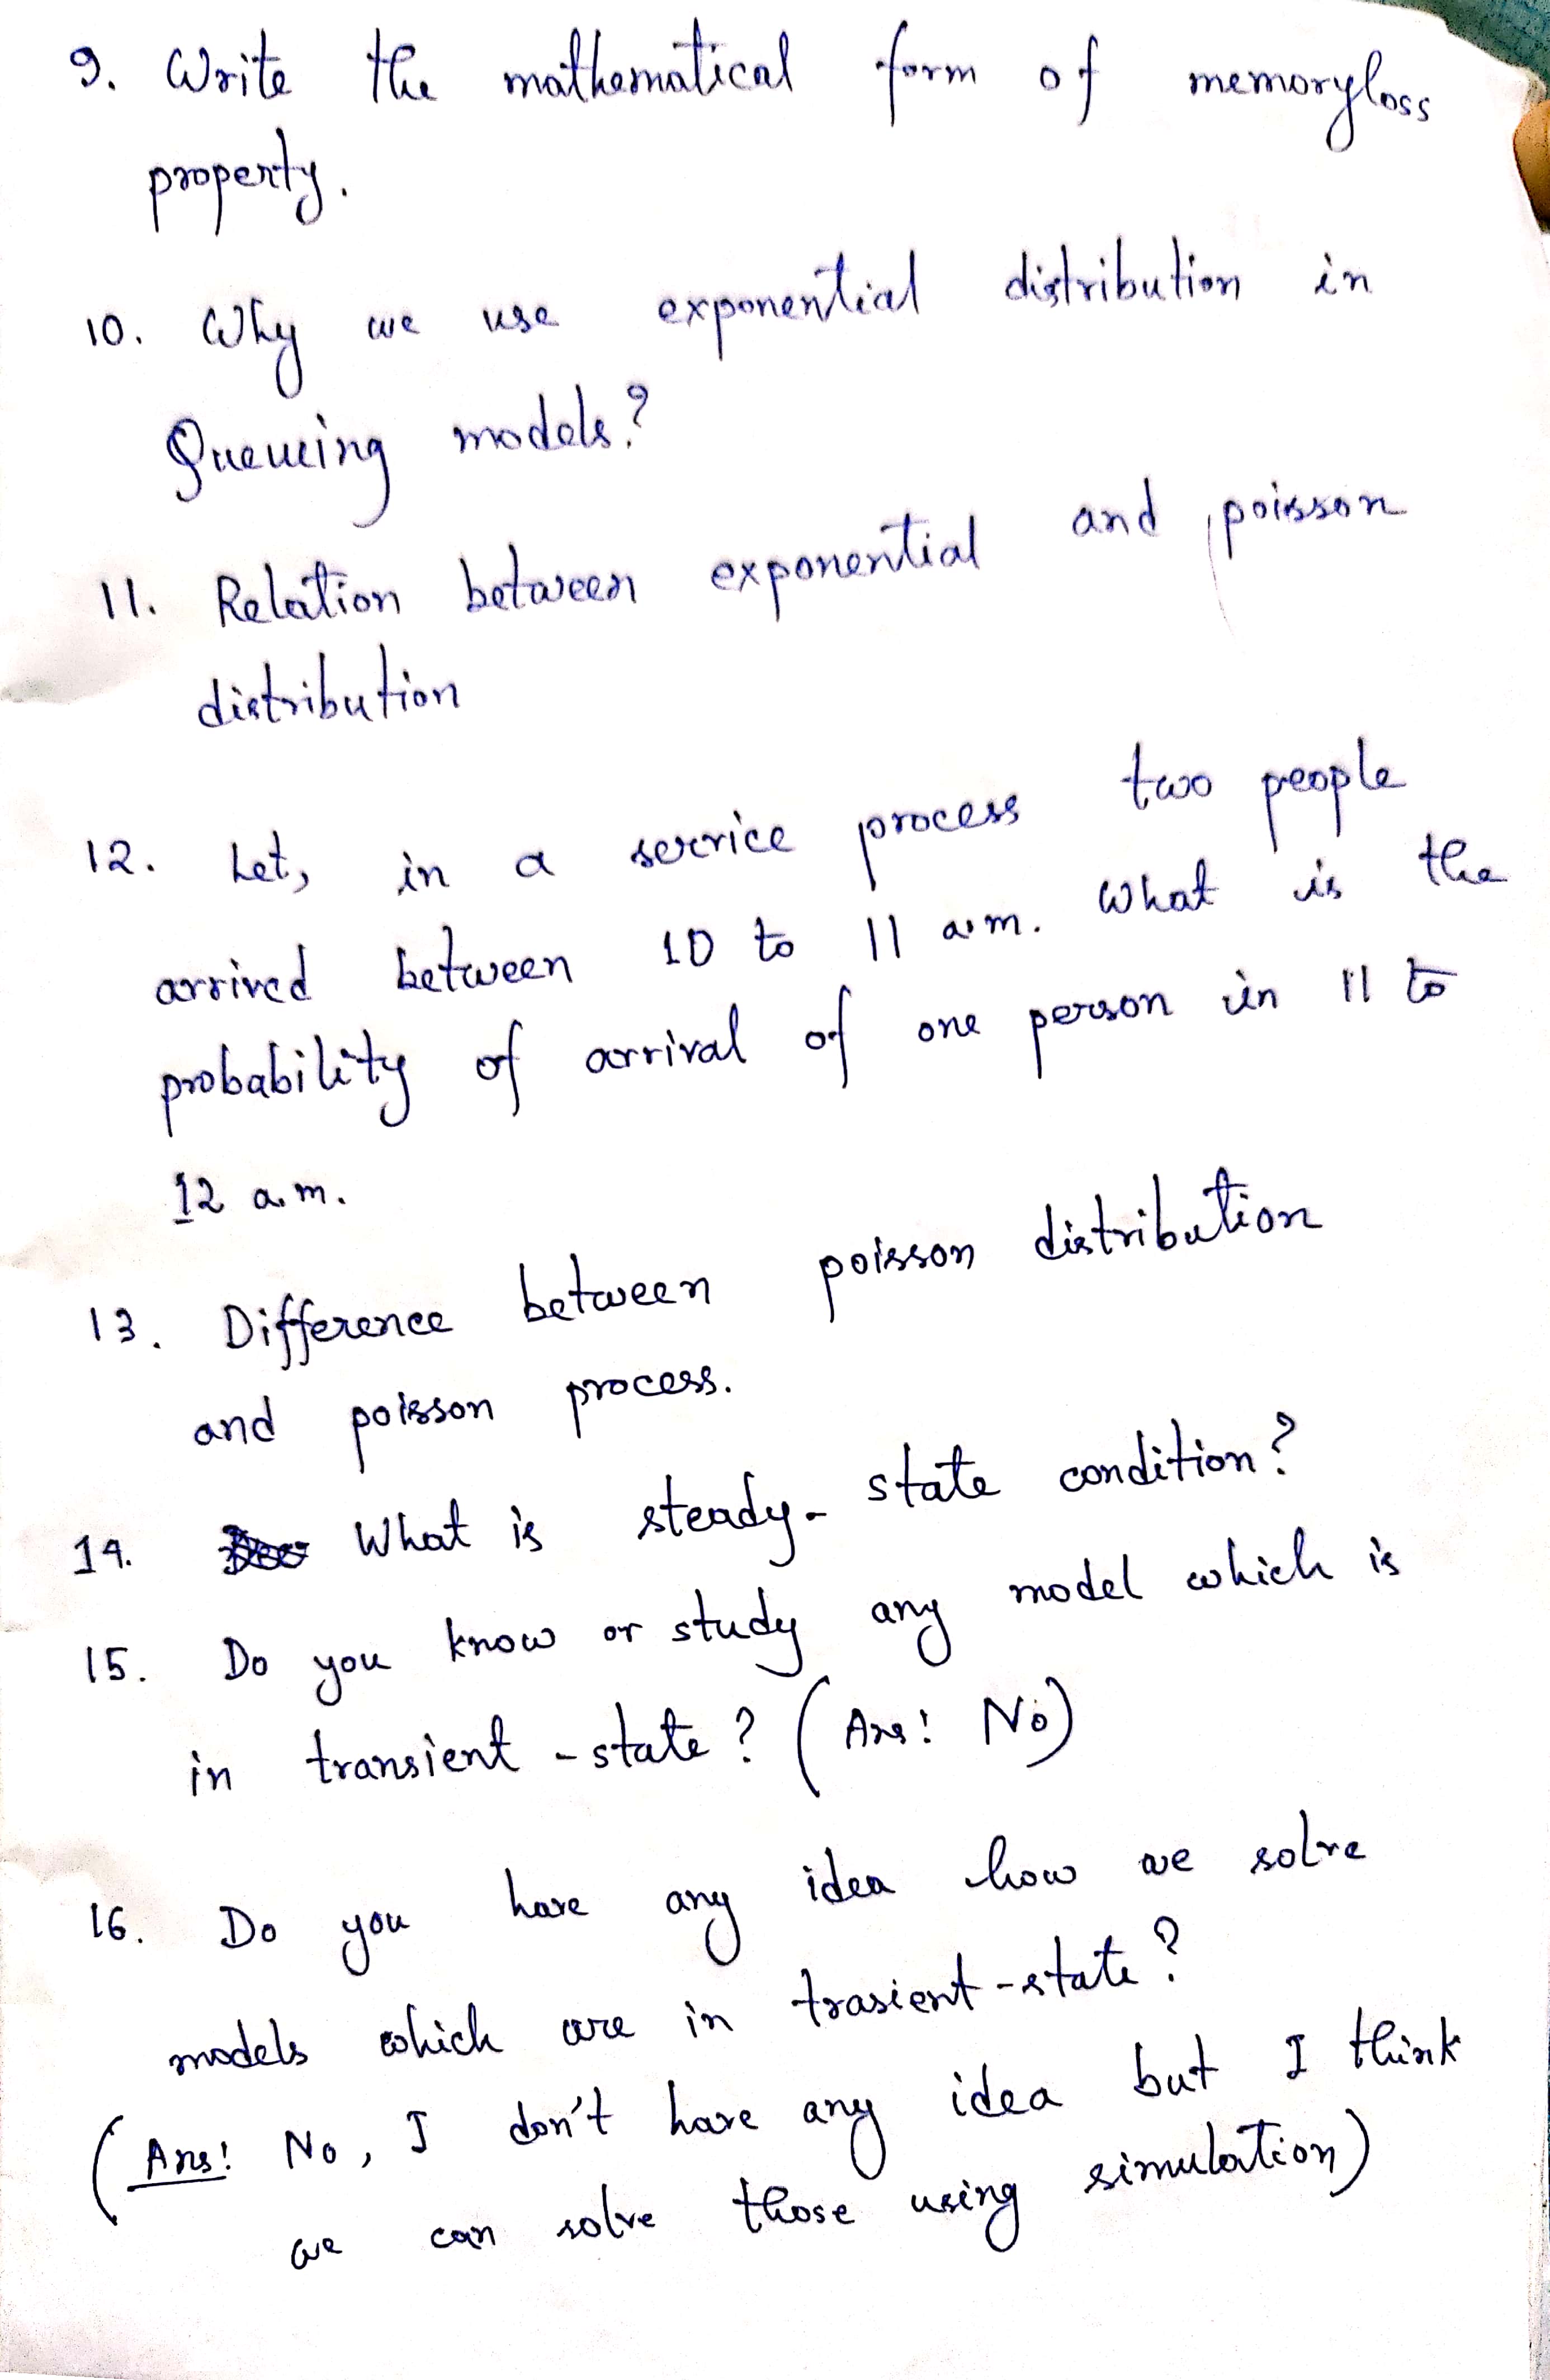 9. Write the mathematical form of memoryloss
property.
10. Why we use exponential distribution in
Queueing models?
11. Relation between exponential and poisson
distribution
12. Let, in a service process two people
arrived between 10 to 11 a.m. What is the
probability of arrival of one person in 11 to
12 a.m.
13. Difference between poisson distribution
and poisson process.
14. What is steady-state condition?
15. Do you know or study any model which is
in transient-state? (Ans: No)
16. Do you have any idea how we solve
models which are in trasient-state?
(Ans: No, I don't have any idea but I think
we can solve those using simulation)